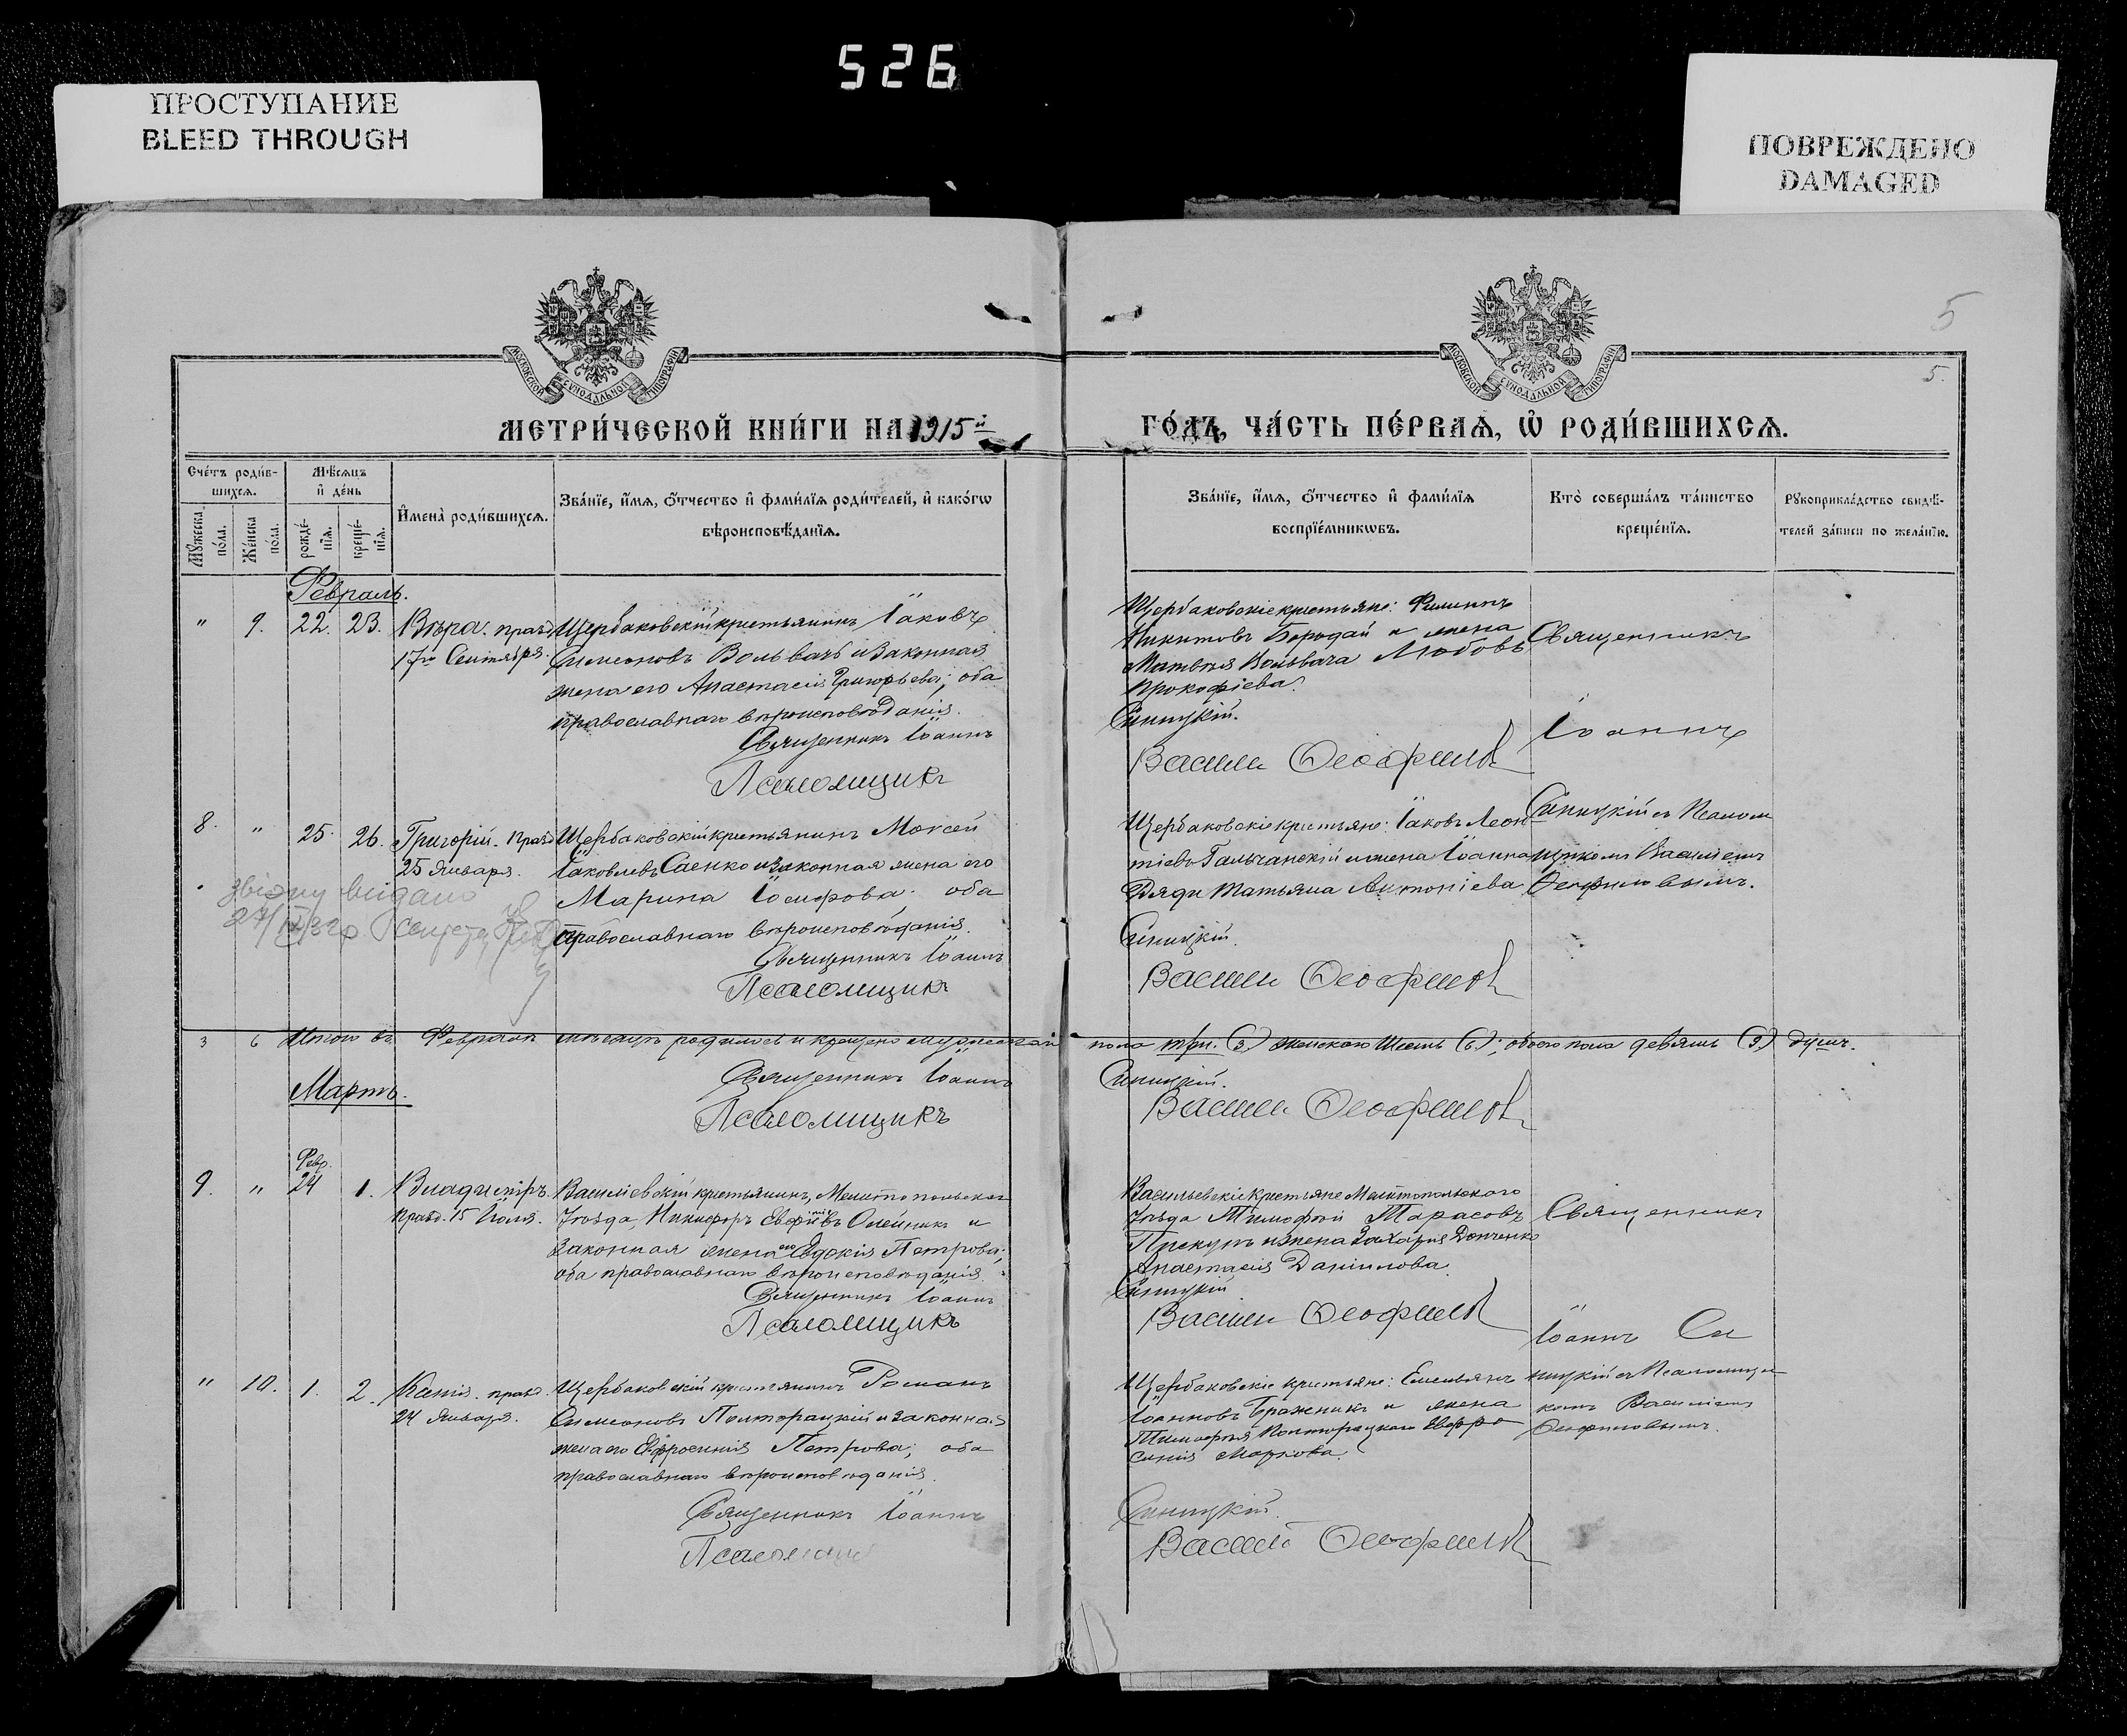 526
ПРОСТУПАНИЕ
BLEED THROUGH
ПОВРЕЖДЕНО
DAMAGED
5
5.
МОСКОВСКОЙ СѴНОДАЛЬНОЙ ТИПОГРАФІИ
МОСКОВСКОЙ СѴНОДАЛЬНОЙ ТИПОГРАФІИ
МЕТРИ́ЧЕСКОЙ КНИ́ГИ НА 1915й
ГО́ДЪ, ЧА́СТЬ ПЕ́РВАѦ, Ѡ҆ РОДИ́ВШИХСѦ.
Сче́тъ роди́в-
шихсѧ.
Мꙋ́жеска по́ла.
Же́нска по́ла.
Мѣ́сѧцъ
и҆ де́нь
рожде́-
нїѧ.
креще́-
нїѧ.
И҆мена̀ роди́вшихсѧ.
Зва́нїе, и҆́мѧ, ѻ҆́тчество и҆ фами́лїѧ роди́телей, и҆ како́гѡ
вѣроисповѣ́данїѧ.
Зва́нїе, и҆́мѧ, ѻ҆́тчество и҆ фами́лїѧ
воспрїе́мникѡвъ.
Кто̀ соверша́лъ та́инство
креще́нїѧ.
Рꙋкоприкла́дство свидѣ́-
телей за́писи по жела́нїю.
Февраль.
" 9. 22. 23. Вѣра. празд.
17го Сентября.
Щербаковскій крестьянинъ Іаковъ
Симеоновъ Вольвачъ и законная
жена его Анастасія Григорьева; оба
православнаго вѣроисповѣданія.
Священникъ Іоаннъ
Псаломщикъ
Щербаковскіе крестьяне: Филиппъ
Никитовъ Бородай и жена
Матвея Вольвача Любовь
Прокофіева.
Синицкій.
Василій Ѳеофилов
Священникъ
Іоаннъ
Синицкій съ Псалом
щикомъ Василіемъ
Ѳеофиловымъ.
8. " 25. 26. Григорій. Празд.
25 Января.
Щербаковскій крестьянинъ Моисей
Іаковлевъ Саенко и законная жена его
Марина Іосифова; оба
православнаго вѣроисповѣданія.
Священникъ Іоаннъ
Псаломщикъ
видано
Щербаковскіе крестьяне: Іаковъ Леон
тіевъ Гальчанскій и жена Іоанна
Дяди Татьяна Антоніева
Синицкій.
Василій Ѳеофилов
3 6 Итого въ Февралѣ мѣсяцѣ родилось и крещено мужескаго
пола три (3) женскаго шесть (6); обоего пола девять (9) душъ.
Священникъ Іоаннъ
Синицкій.
Псаломщикъ
Василій Ѳеофилов
Мартъ.
Февр.
9. " 24 1. Владиміръ.
празд. 15 Іюля.
Василіевскій крестьянинъ, Мелитопольскаго
Уѣзда, Никифоръ Евфиміевъ Олейникъ и
законная жена его Евдокія Петрова;
оба православнаго вѣроисповѣданія.
Священникъ Іоаннъ
Псаломщикъ
Васильевскіе крестьяне Мелитопольскаго
Уѣзда Тимофей Тарасовъ
и жена Захарія Донченко
Анастасія Даніилова.
Синицкій
Василій Ѳеофилов
Священникъ
Іоаннъ Си
ницкій съ Псаломщи
комъ Василіемъ
Ѳеофиловымъ.
" 10. 1. 2. Ксенія. празд.
24 Января.
Щербаковскій крестьянинъ Романъ
Симеоновъ Полторацкій и законная
жена его Евфросинія Петрова; оба
православнаго вѣроисповѣданія.
Священникъ Іоаннъ
Псаломщик
Щербаковскіе крестьяне: Емельянъ
Іоанновъ Бражникъ и жена
Тимофея Полторацкаго Евфро
синія Маркова.
Синицкій.
Василій Ѳеофилов